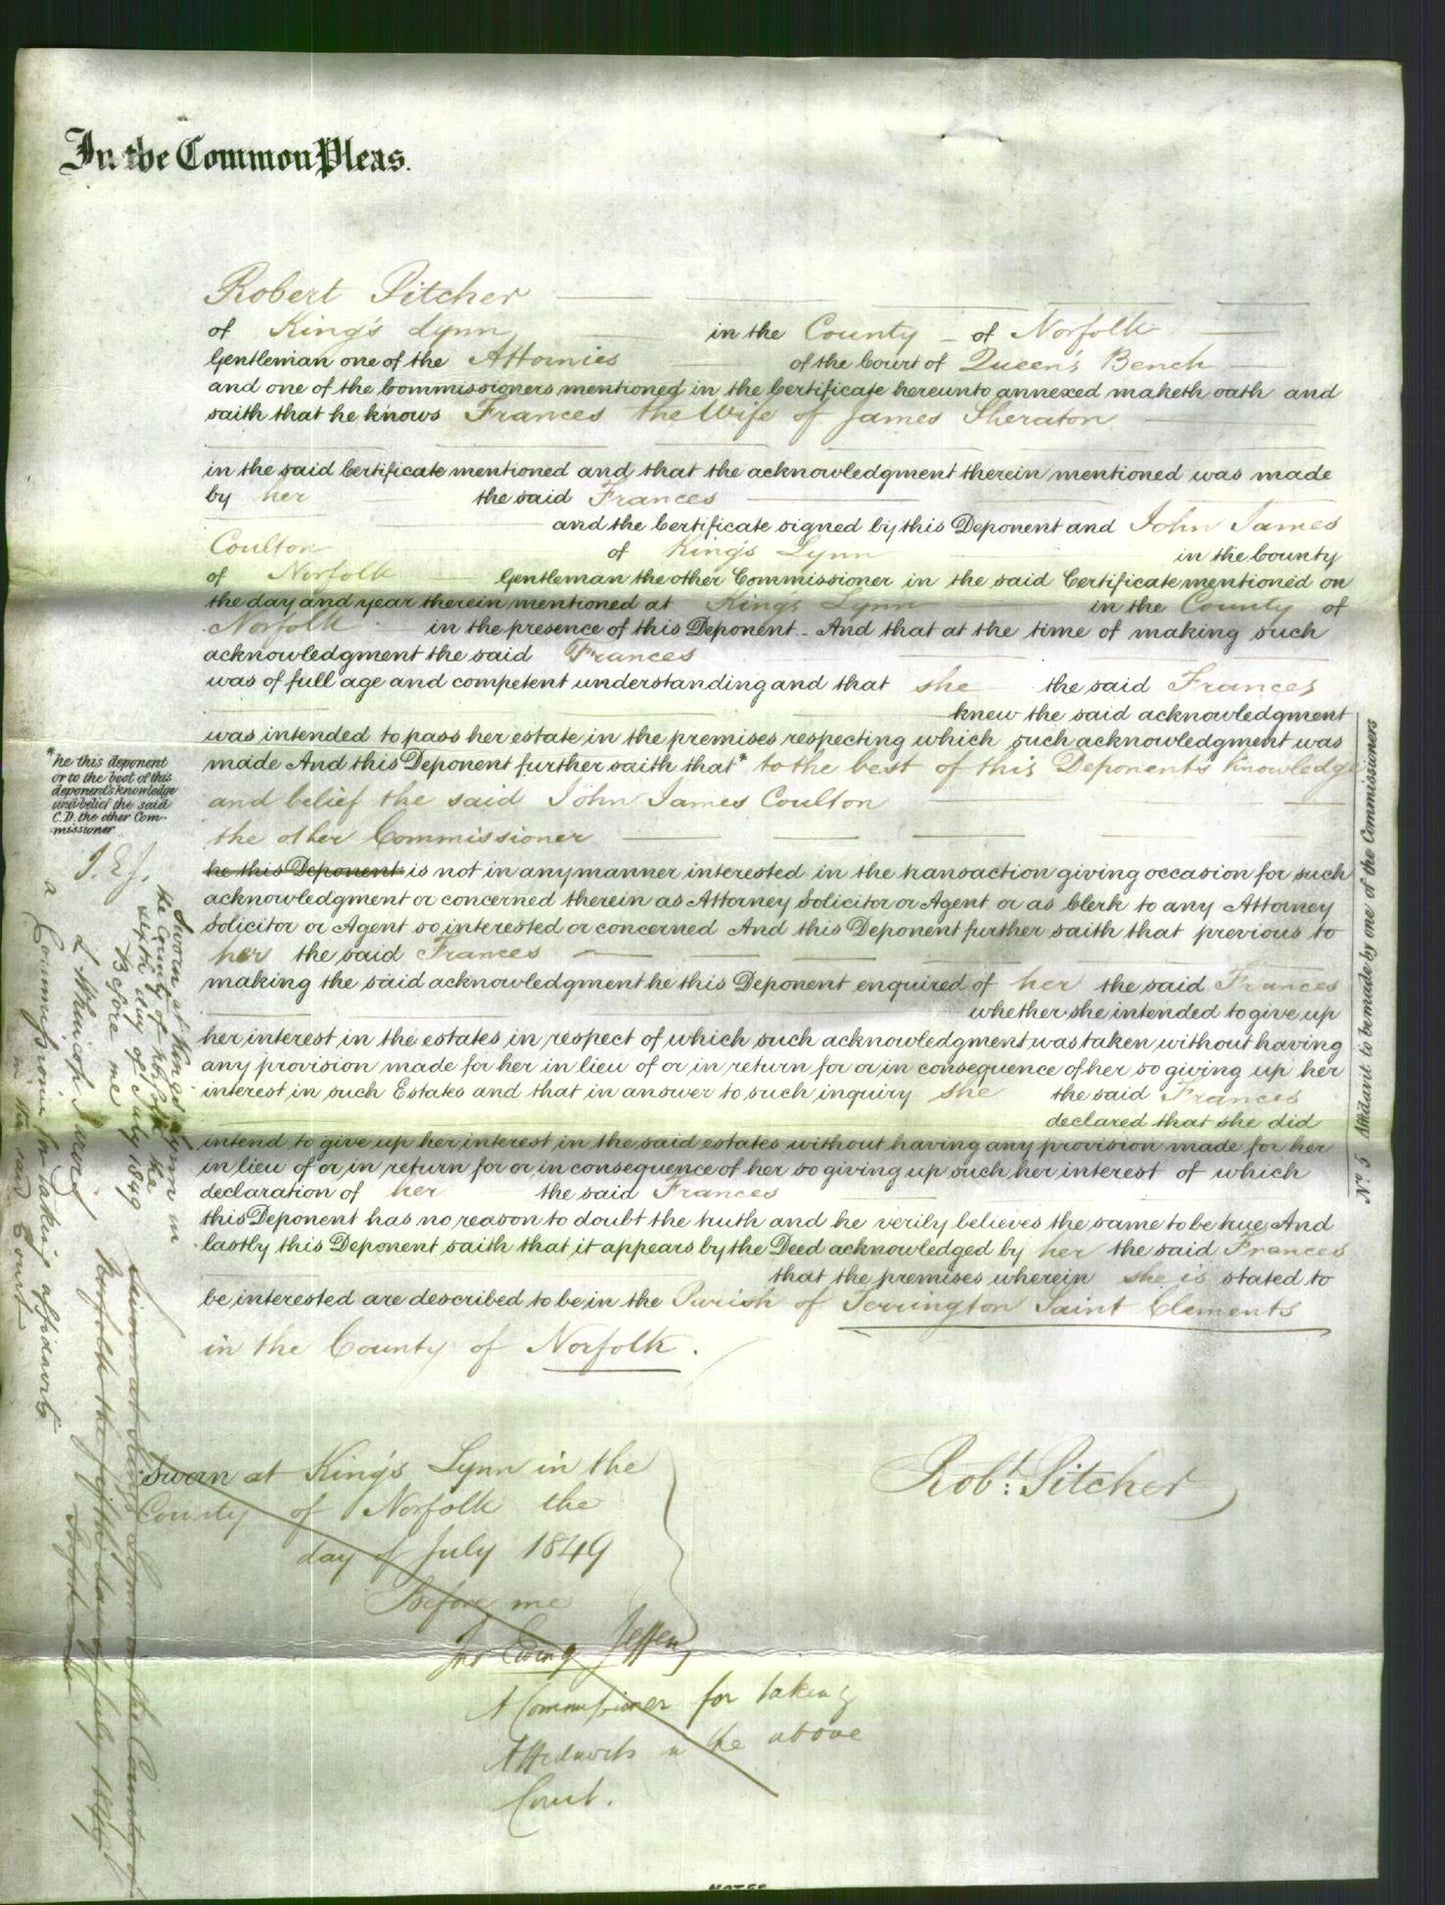 In the Common Pleas.
Robert Pitcher
of King's Lynn in the County of Norfolk
Gentleman one of the Attornies of the Court of Queen's Bench
and one of the Commissioners mentioned in the Certificate hereunto annexed maketh oath and
saith that he knows Frances the Wife of James Sheraton
in the said Certificate mentioned and that the acknowledgment therein mentioned was made
by her the said Frances
and the Certificate signed by this Deponent and John James
Coulton of King's Lynn in the County
of Norfolk Gentleman the other Commissioner in the said Certificate mentioned on
the day and year therein mentioned at King's Lynn in the County of
Norfolk in the presence of this Deponent. And that at the time of making such
acknowledgment the said Frances
was of full age and competent understanding and that she the said Frances
knew the said acknowledgment
was intended to pass her estate in the premises respecting which such acknowledgment was
made And this Deponent further saith that* to the best of this Deponent's knowledge
and belief the said John James Coulton
the other Commissioner
he this Deponent is not in any manner interested in the transaction giving occasion for such
acknowledgment or concerned therein as Attorney Solicitor or Agent or as Clerk to any Attorney
Solicitor or Agent so interested or concerned And this Deponent further saith that previous to
her the said Frances
making the said acknowledgment he this Deponent enquired of her the said Frances
whether she intended to give up
her interest in the estates in respect of which such acknowledgment was taken without having
any provision made for her in lieu of or in return for or in consequence of her so giving up her
interest in such Estates and that in answer to such inquiry she the said Frances
declared that she did
intend to give up her interest in the said estates without having any provision made for her
in lieu of or in return for or in consequence of her so giving up such her interest of which
declaration of her the said Frances
this Deponent has no reason to doubt the truth and he verily believes the same to be true And
lastly this Deponent saith that it appears by the Deed acknowledged by her the said Frances
that the premises wherein she is stated to
be interested are described to be in the Parish of Terrington Saint Clements
in the County of Norfolk.
Sworn at King's Lynn in the
County of Norfolk the
day of July 1849
Before me
Jno Ewing Jeffery
A Commissioner for taking
Affidavits in the above
Court.
Robt: Pitcher
*he this deponent
or to the best of this
deponent's knowledge
and belief the said
C.D. the other Com-
missioner
J.E.J.
Sworn at Kings Lynn in
the County of Norfolk the
sixth day of July 1849
Before me
a Commissioner for taking affidavits
in the said Court
Sworn at Kings Lynn in the County of
Norfolk the fifth day of July 1849
Before me
No. 5 Affidavit to be made by one of the Commissioners
NOTES